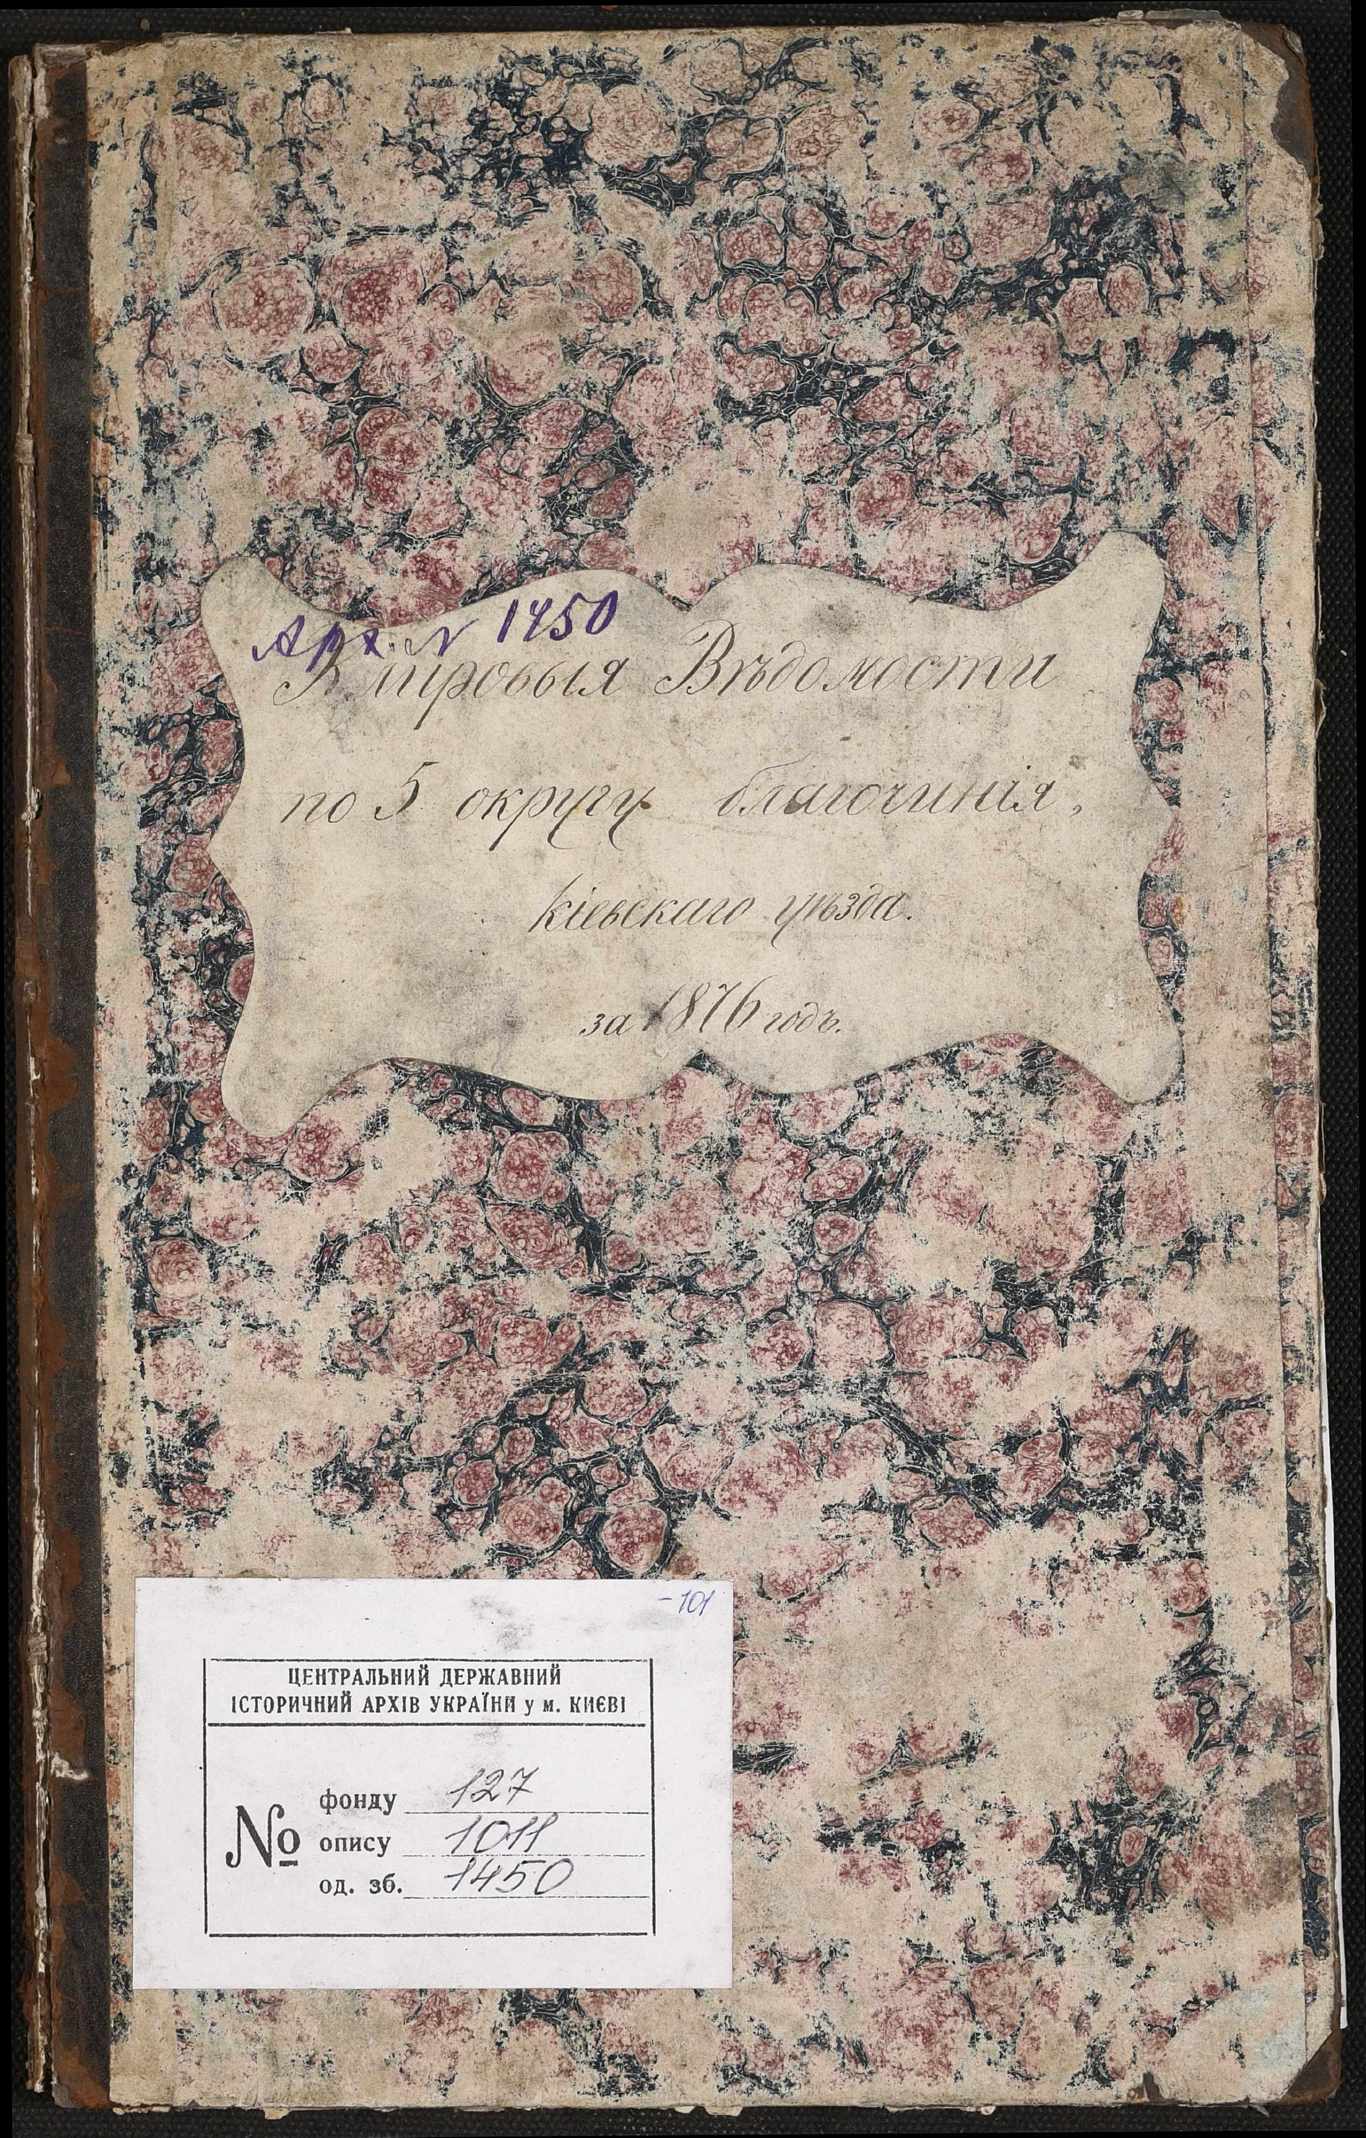 Арх. N 1450
Клировыя Вѣдомости
по 5 округу благочинія,
кіевскаго уѣзда.
за 1876 годъ.
-101
ЦЕНТРАЛЬНИЙ ДЕРЖАВНИЙ
ІСТОРИЧНИЙ АРХІВ УКРАЇНИ у м. КИЄВІ
№
фонду 127
опису 1011
од. зб. 1450